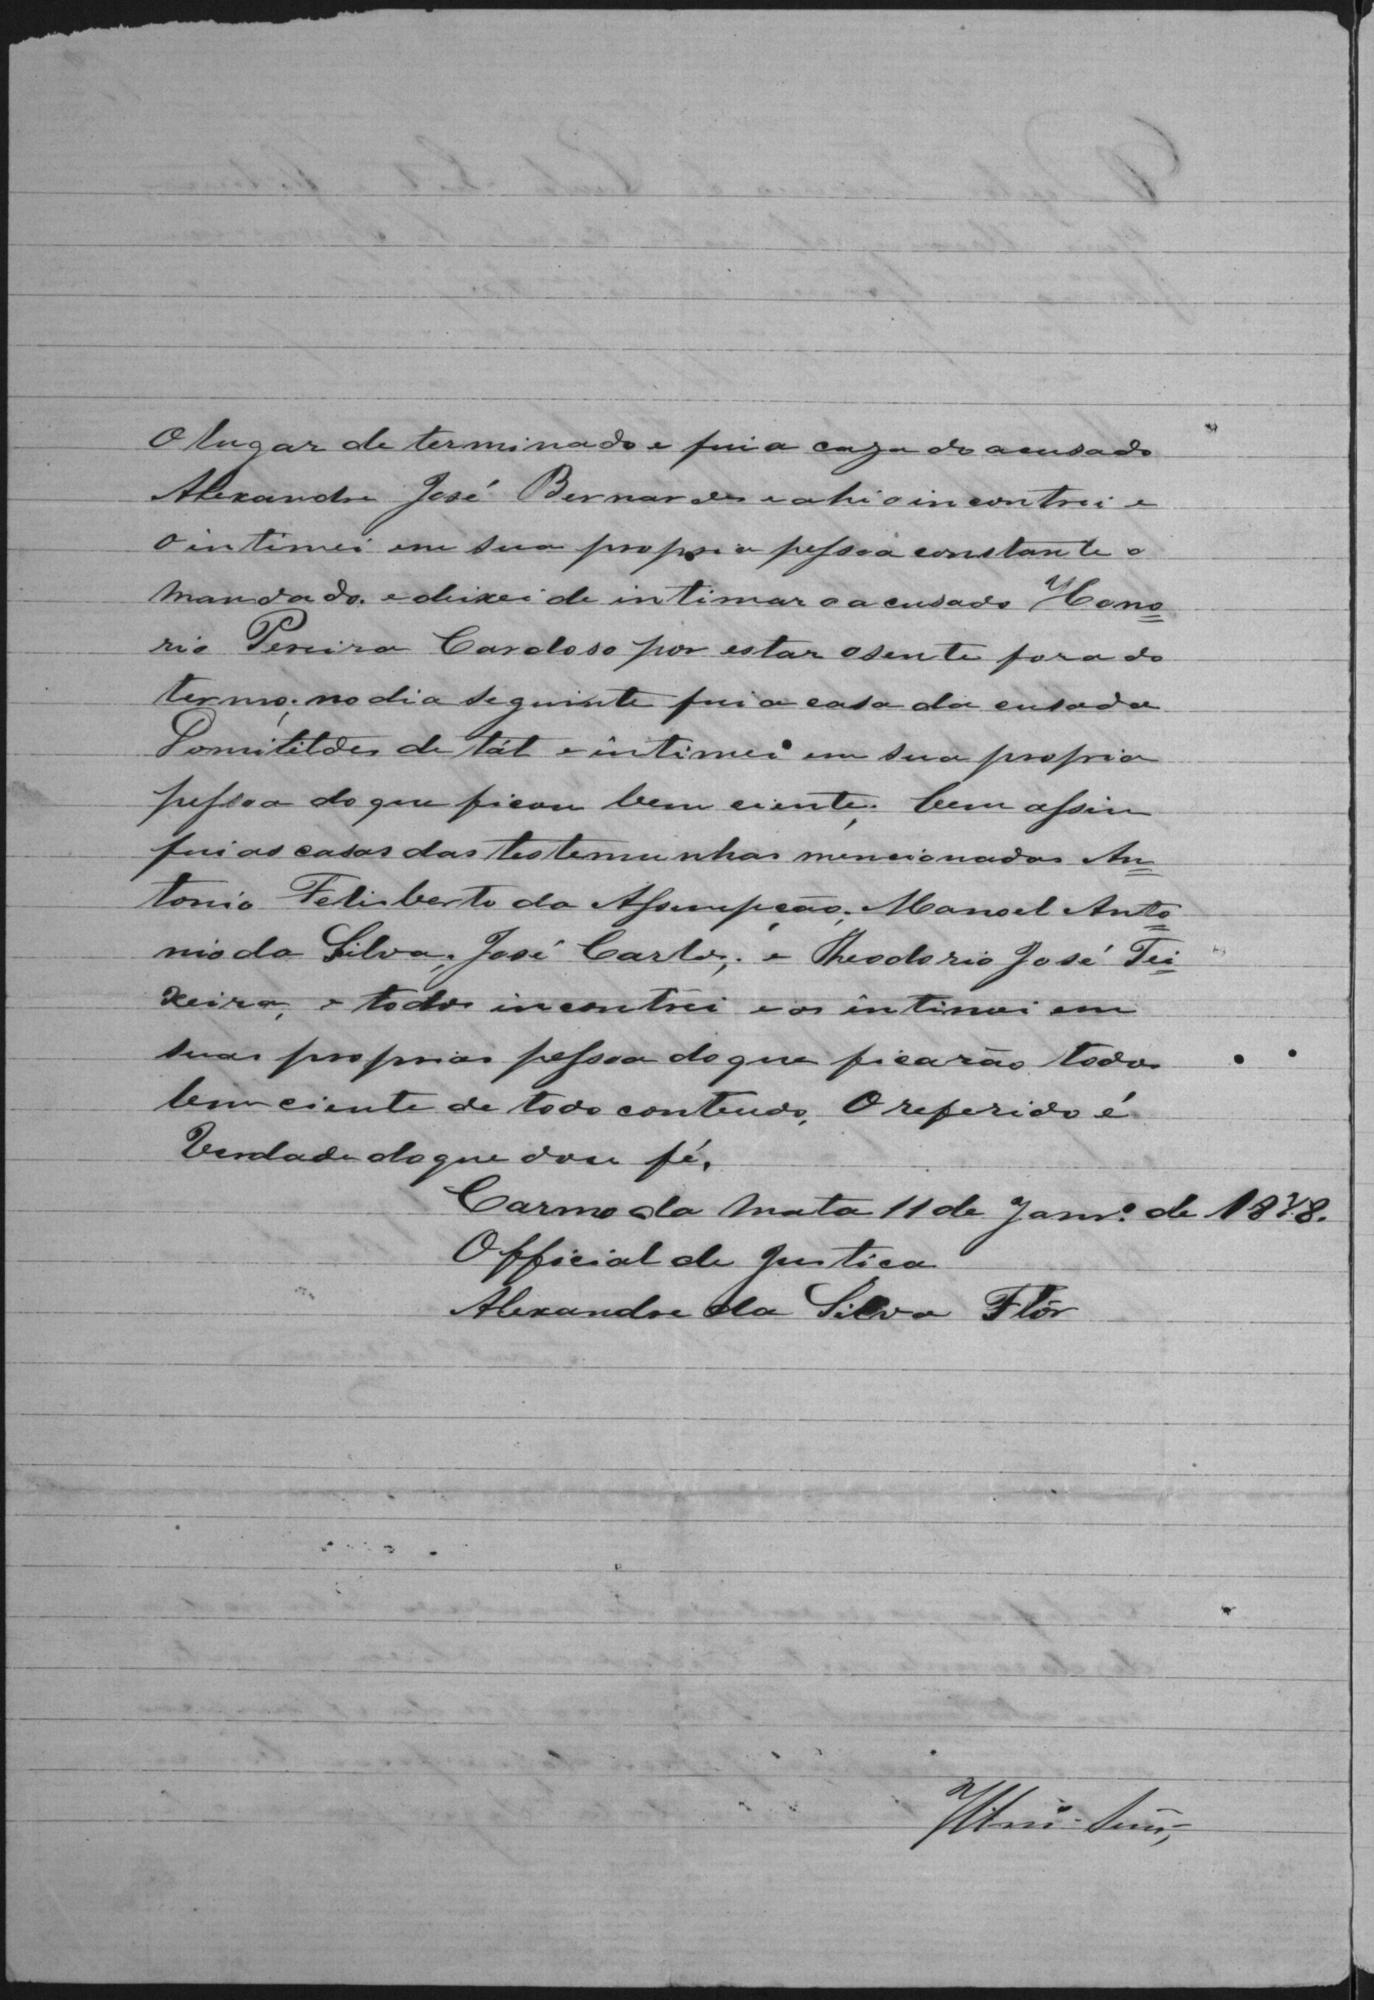 O lugar de terminado e fui a caza do acusado
Alexandre José Bernardes e ahi o incontrei e
o intimei em sua propria pessoa constante o
mandado. e deixei de intimar o acusado Hono=
rio Pereira Cardoso por estar osente fora do
termo; no dia seguinte fui a casa da cusada
Domitildes de tál e intimei em sua propria
pessoa do que ficou bem ciente; bem assim
fui as casas das testemunhas mencionadas An=
tonio Felisberto da Assumpção; Manoel Anto=
nio da Silva; José Carlos; e Theodorio José Tei=
xeira, e todos incontrei e os intimei em
suas proprias pessoa do que ficarão todos
bem ciente de todo conteudo. O referido é
Verdade do que dou fé.
Carmo da Mata 11 de Janr.º de 1878.
Official de Justica
Alexandre da Silva Flôr